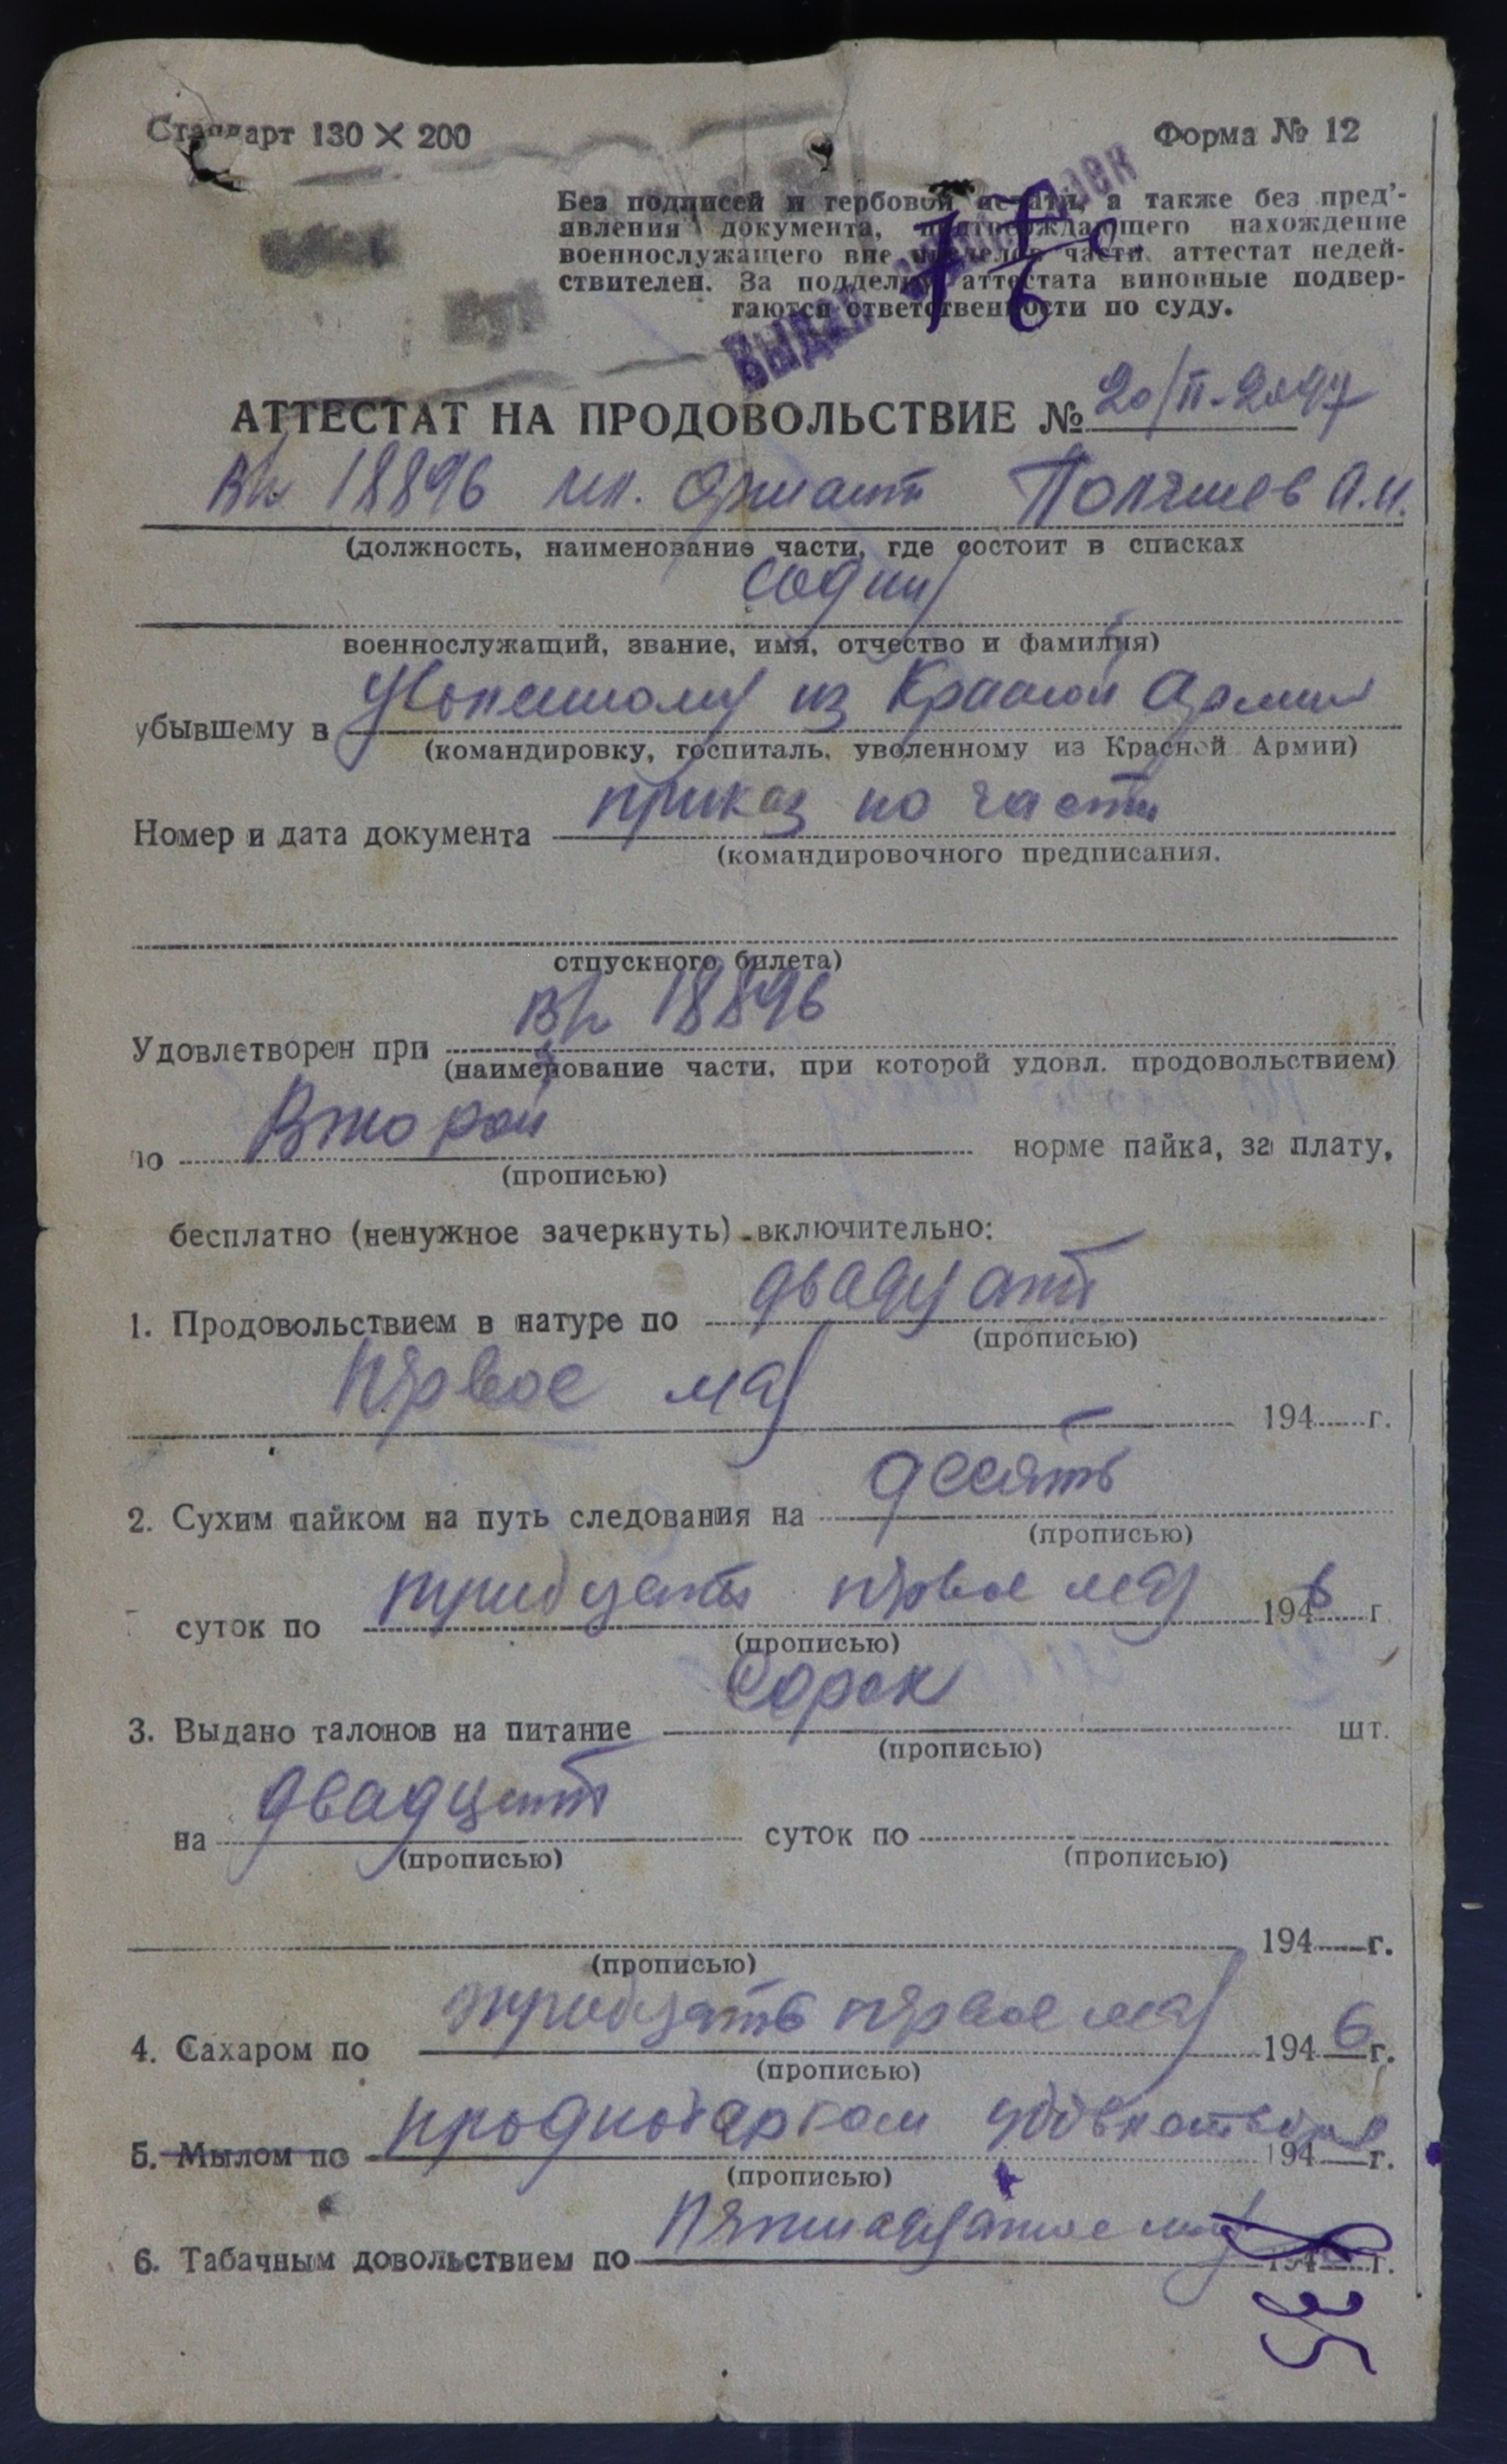 Стандарт 130 × 200
Форма № 12
Без подписей и гербовой печати, а также без пред'-
явления документа, подтверждающего нахождение
военнослужащего вне пределов части, аттестат недей-
ствителен. За подделку аттестата виновные подвер-
гаются ответственности по суду.
Выдан
АТТЕСТАТ НА ПРОДОВОЛЬСТВИЕ № 20/II-2097
в/ч 18896 мл. А.И.
(должность, наименование части, где состоит в списках
военнослужащий, звание, имя, отчество и фамилия)
убывшему в уволенному из Красной Армии
(командировку, госпиталь, уволенному из Красной Армии)
Номер и дата документа приказ по части
(командировочного предписания.
отпускного билета)
Удовлетворен при в/ч 18896
(наименование части, при которой удовл. продовольствием)
по Второй норме пайка, за плату,
(прописью)
бесплатно (ненужное зачеркнуть) включительно:
1. Продовольствием в натуре по двадцать
(прописью)
первое мая 194 г.
2. Сухим пайком на путь следования на десять
(прописью)
суток по тридцать первое мая 1946 г
(прописью)
3. Выдано талонов на питание Сорок шт.
(прописью)
на двадцать суток по
(прописью) (прописью)
194 г.
(прописью)
4. Сахаром по тридцать первое мая 1946 г.
(прописью)
5. Мылом по 194 г.
(прописью)
6. Табачным довольствием по Пятнадцатое мая 194 г.